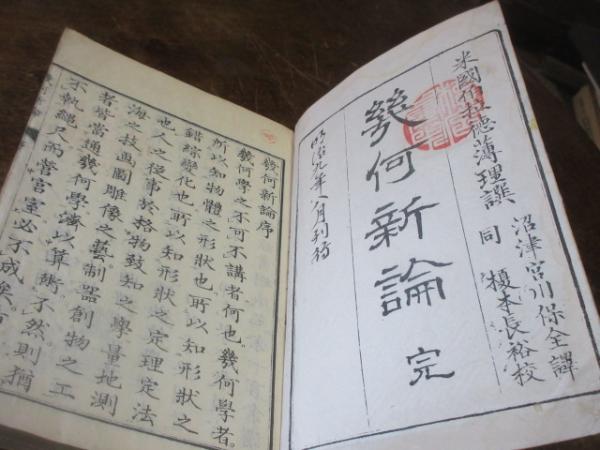 米國伯拉德薄理譔
沼津 宮川保全譯
同 榎本長裕校
幾何新論 完
明治九年八月刊行
幾何新論序
幾何學之不可不講者何也幾何學者
所以知物體之形狀也所以知形狀之
錯綜變化也所以知形狀之定理定法
也人之從事於格物致知之學量地測
海之技画圖雕像之藝制器創物之工
者皆當通幾何學濟以算術不然則猶
不執繩尺而營宮室必不成矣